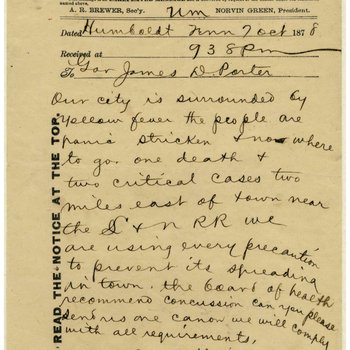 A. R. BREWER, Sec'y. NORVIN GREEN, President.
Dated Humboldt Tenn 7 Oct 1878
Received at 938 Pm
To Gov James D Porter
Our city is surrounded by
Yellow fever the people are
panic stricken & no where
to go. one death &
two critical cases two
miles east of town near
the L & N RR we
are using every precaution
to prevent its spreading
in town. the board of health
recommend concussion can you please
send us one canon we will comply
with all requirements,
READ THE NOTICE AT THE TOP.